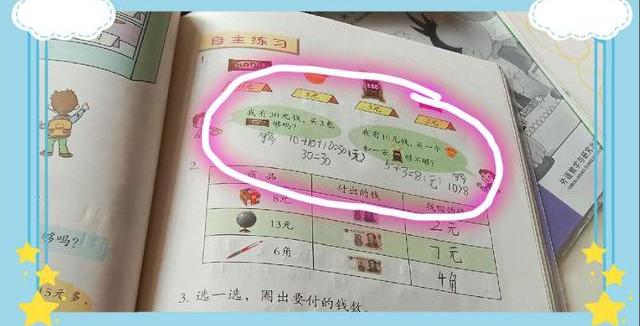 自主练习
1.
5元
3元
2元
我有30元钱，买3包
够吗？
我有10元钱，买一个
和一袋
够不够？
够 10+10+10=30(元)
30=30
5+3=8(元) 够
10>8
2.
商品 付出的钱 找回的钱
8元 2元
13元 7元
6角 4角
够吗？
5元多，
3. 选一选，圈出要付的钱数